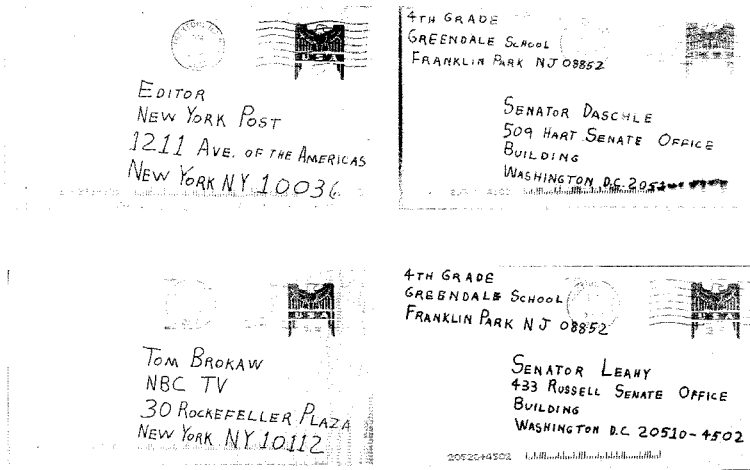 USA
EDITOR
NEW YORK POST
1211 AVE. OF THE AMERICAS
NEW YORK NY 10036
4TH GRADE
GREENDALE SCHOOL
FRANKLIN PARK NJ 08852
SENATOR DASCHLE
509 HART SENATE OFFICE
BUILDING
WASHINGTON D.C.
USA
TOM BROKAW
NBC TV
30 ROCKEFELLER PLAZA
NEW YORK NY 10112
4TH GRADE
GREENDALE SCHOOL
FRANKLIN PARK NJ 08852
USA
SENATOR LEAHY
433 RUSSELL SENATE OFFICE
BUILDING
WASHINGTON D.C. 20510-4502
20520+4502